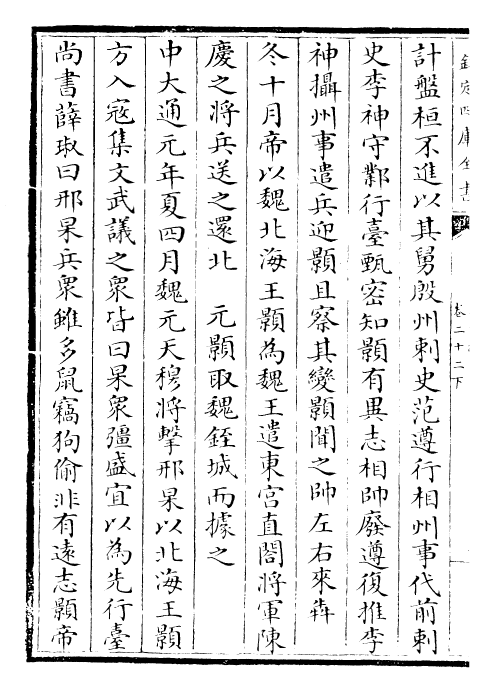 欽定四庫全書
卷二十二下
計盤桓不進以其舅殷州刺史范遵行相州事代前刺
史李神守鄴行臺甄密知顥有異志相帥廢遵復推李
神攝州事遣兵迎顥且察其變顥聞之帥左右來犇
冬十月帝以魏北海王顥為魏王遣東宫直閤將軍陳
慶之將兵送之還北　元顥取魏銍城而據之
中大通元年夏四月魏元天穆將擊邢杲以北海王顥
方入寇集文武議之衆皆曰杲衆彊盛宜以為先行臺
尚書薛琡曰邢杲兵衆雖多鼠竊狗偷非有遠志顥帝